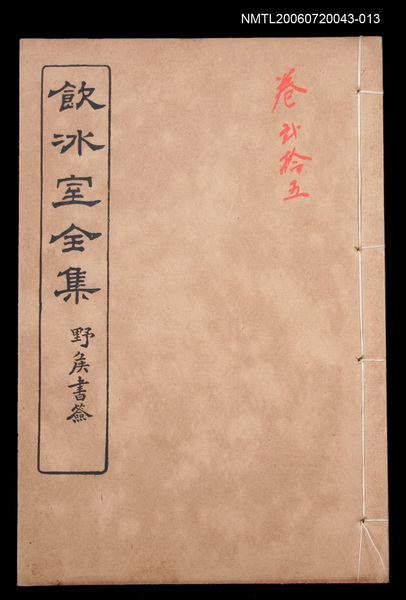 NMTL20060720043-013
卷弐拾五
飲冰室全集
野矦書簽